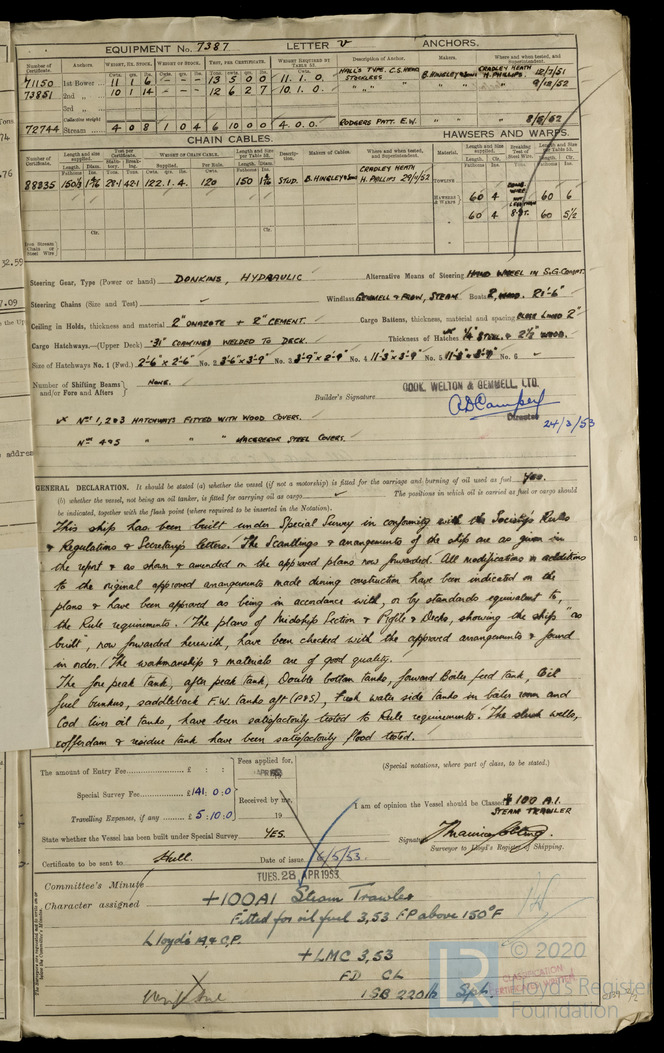 EQUIPMENT No. 7387 LETTER V ANCHORS.
Number of Certificate. Anchors. Weight, Ex. Stock. Weight of Stock. Test, per Certificate. Weight Required by Table 53. Description of Anchor. Makers. Where and when tested, and Superintendent.
Cwts. qrs. lbs.
71150 1st Bower 11 1 6 - - - 13 5 0 0 11. 1. 0. HALL'S TYPE. C.S. HEAD STOCKLESS B. HINGLEY & SONS CRADLEY HEATH H. PHILLIPS. 12/3/51
73851 2nd " 10 1 14 - - - 12 6 2 7 10. 1. 0. " " " " " 9/12/52
3rd "
Collective weight
72744 Stream 4 0 8 1 0 4 6 10 0 0 4. 0. 0. RODGERS PATT. E.W. " " 8/5/52
CHAIN CABLES. HAWSERS AND WARPS.
Number of Certificate. Length and size supplied. Test per Certificate. Weight of Chain Cable. Length and Size per Table 53. Description. Makers of Cables. Where and when tested, and Superintendent. Material. Length and Size supplied. Breaking Test of Steel Wire. Length and Size per Table 53.
Supplied. Per Rule. Length. Diam. Length. Cir.
Fathoms Ins. Fathoms Ins.
88335 150½ 1 5/16 28·1 42·1 122. 1. 4. 120 150 1 5/16 STUD. B. HINGLEY & SONS CRADLEY HEATH H. PHILLIPS 29/9/52
Towline
Hawsers & Warps 60 4 60 6
60 4 60 5½
Iron Stream Chain or Steel Wire Cir. Cir.
Steering Gear, Type (Power or hand) DONKINS, HYDRAULIC Alternative Means of Steering HAND WHEEL IN S.G. COMPT.
Steering Chains (Size and Test) Windlass GEMMELL & FROW, STEAM Boats 2, WOOD. 21'-6"
Ceiling in Holds, thickness and material 2" ONAZOTE + 2" CEMENT. Cargo Battens, thickness, material and spacing LINED 2"
Cargo Hatchways.—(Upper Deck) 31" COAMINGS WELDED TO DECK. Thickness of Hatches ¼" STEEL & 2½" WOOD.
Size of Hatchways No. 1 (Fwd.) 2'-6" x 2'-6" No. 2 3'-6" x 3'-9" No. 3 3'-9" x 2'-9" No. 4 11'-3" x 3'-9" No. 5 11'-3" x 3'-9" No. 6
Number of Shifting Beams and/or Fore and Afters NONE.
Builder's Signature COOK, WELTON & GEMMELL, LTD.
Director
24/3/53
Nos 1, 2 & 3 HATCHWAYS FITTED WITH WOOD COVERS.
Nos 4 & 5 " " " MACGREGOR STEEL COVERS.
GENERAL DECLARATION. It should be stated (a) whether the vessel (if not a motorship) is fitted for the carriage and burning of oil used as fuel YES.
(b) whether the vessel, not being an oil tanker, is fitted for carrying oil as cargo The positions in which oil is carried as fuel or cargo should
be indicated, together with the flash point (where required to be inserted in the Notation).
This ship has been built under Special Survey in conformity with the Society's Rules
& Regulations & Secretary's letters. The Scantlings & arrangements of the ship are as given in
the report & as shown & amended on the approved plans now forwarded. All modifications & additions
to the original approved arrangements made during construction have been indicated on the
plans & have been approved as being in accordance with, or by standards equivalent to,
the Rule requirements. The plans of Midship Section & Profile & Decks, showing the ship "as
built", now forwarded herewith, have been checked with the approved arrangements & found
in order. The workmanship & materials are of good quality.
The fore peak tank, after peak tank, Double bottom tanks, forward Boiler feed tank, Oil
fuel bunkers, saddleback F.W. tanks aft (P&S), Fresh water side tanks in boiler room and
Cod liver oil tanks, have been satisfactorily tested to Rule requirements. The slush wells,
cofferdam & residue tank have been satisfactorily flood tested.
The amount of Entry Fee £ : : Fees applied for, (Special notations, where part of class, to be stated.)
Special Survey Fee £141:0:0 Received by me, I am of opinion the Vessel should be Classed + 100 A.1.
STEAM TRAWLER
Travelling Expenses, if any £5:10:0 19
State whether the Vessel has been built under Special Survey YES. Signature
Surveyor to Lloyd's Register of Shipping.
Certificate to be sent to Hull. Date of issue 6/5/53.
Committee's Minute TUES. 28 APR 1953
Character assigned +100A1 Steam Trawler
Fitted for oil fuel 3,53 FP above 150°F
Lloyd's A & C.P.
+ LMC 3,53
FD CL
1SB 220 lb Spt.
© 2020
Lloyd's Register
Foundation